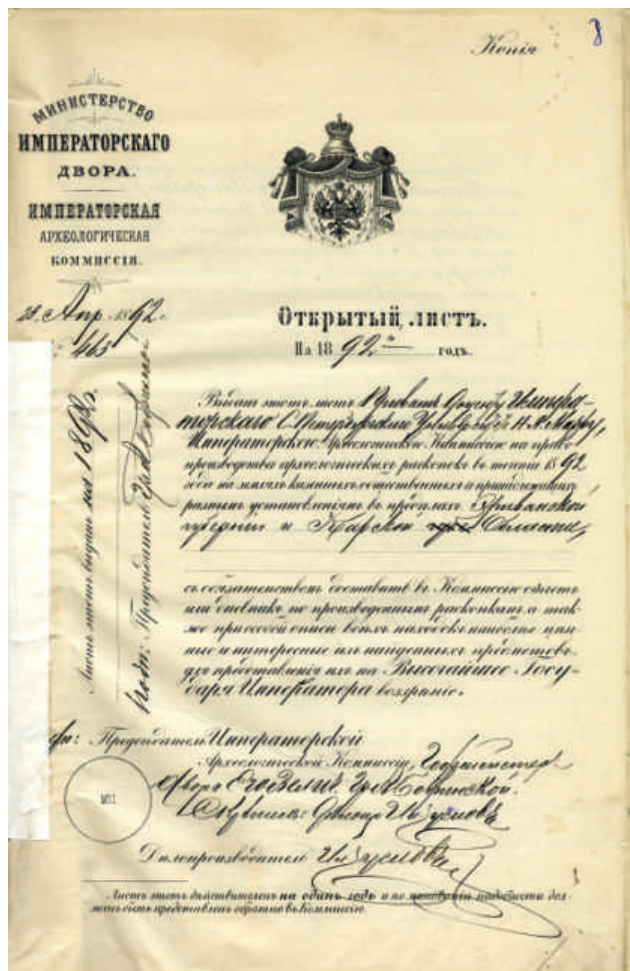 Копія
8
МИНИСТЕРСТВО
ИМПЕРАТОРСКАГО
ДВОРА.
ИМПЕРАТОРСКАЯ
АРХЕОЛОГИЧЕСКАЯ
КОММИССІЯ.
28 Апр. 1892 г.
463
Открытый листъ.
На 1892 годъ.
Выданъ этотъ листъ Приватъ Доценту Импера-
торскаго С.Петербургскаго Университета Н. Я. Марру,
Императорскою Археологическою Коммиссіею на право
производства археологическихъ раскопокъ въ теченіе 1892
года на земляхъ казенныхъ, общественныхъ и принадлежащихъ
разнымъ установленіямъ въ предѣлахъ Эриванской
губерніи и Карской Области,
съ обязательствомъ доставить въ Коммиссію отчетъ
или дневникъ по произведеннымъ раскопкамъ, а так-
же при особой описи всѣхъ находокъ наиболѣе цѣн-
ные и интересные изъ найденныхъ предметовъ,
для представленія ихъ на Высочайшее Госу-
даря Императора воззрѣніе.
Предсѣдатель Императорской
Археологической Коммиссіи, Гофмейстер
Двора Его Велич. Гр. А. Бобринской.
МП
Дѣлопроизводитель
Листъ этотъ дѣйствителенъ на одинъ годъ и по минованіи надобности дол-
женъ быть представленъ обратно въ Коммиссію.
Листъ этотъ выданъ на 189
Подп: Предсѣдатель Гр. А. Бобринской